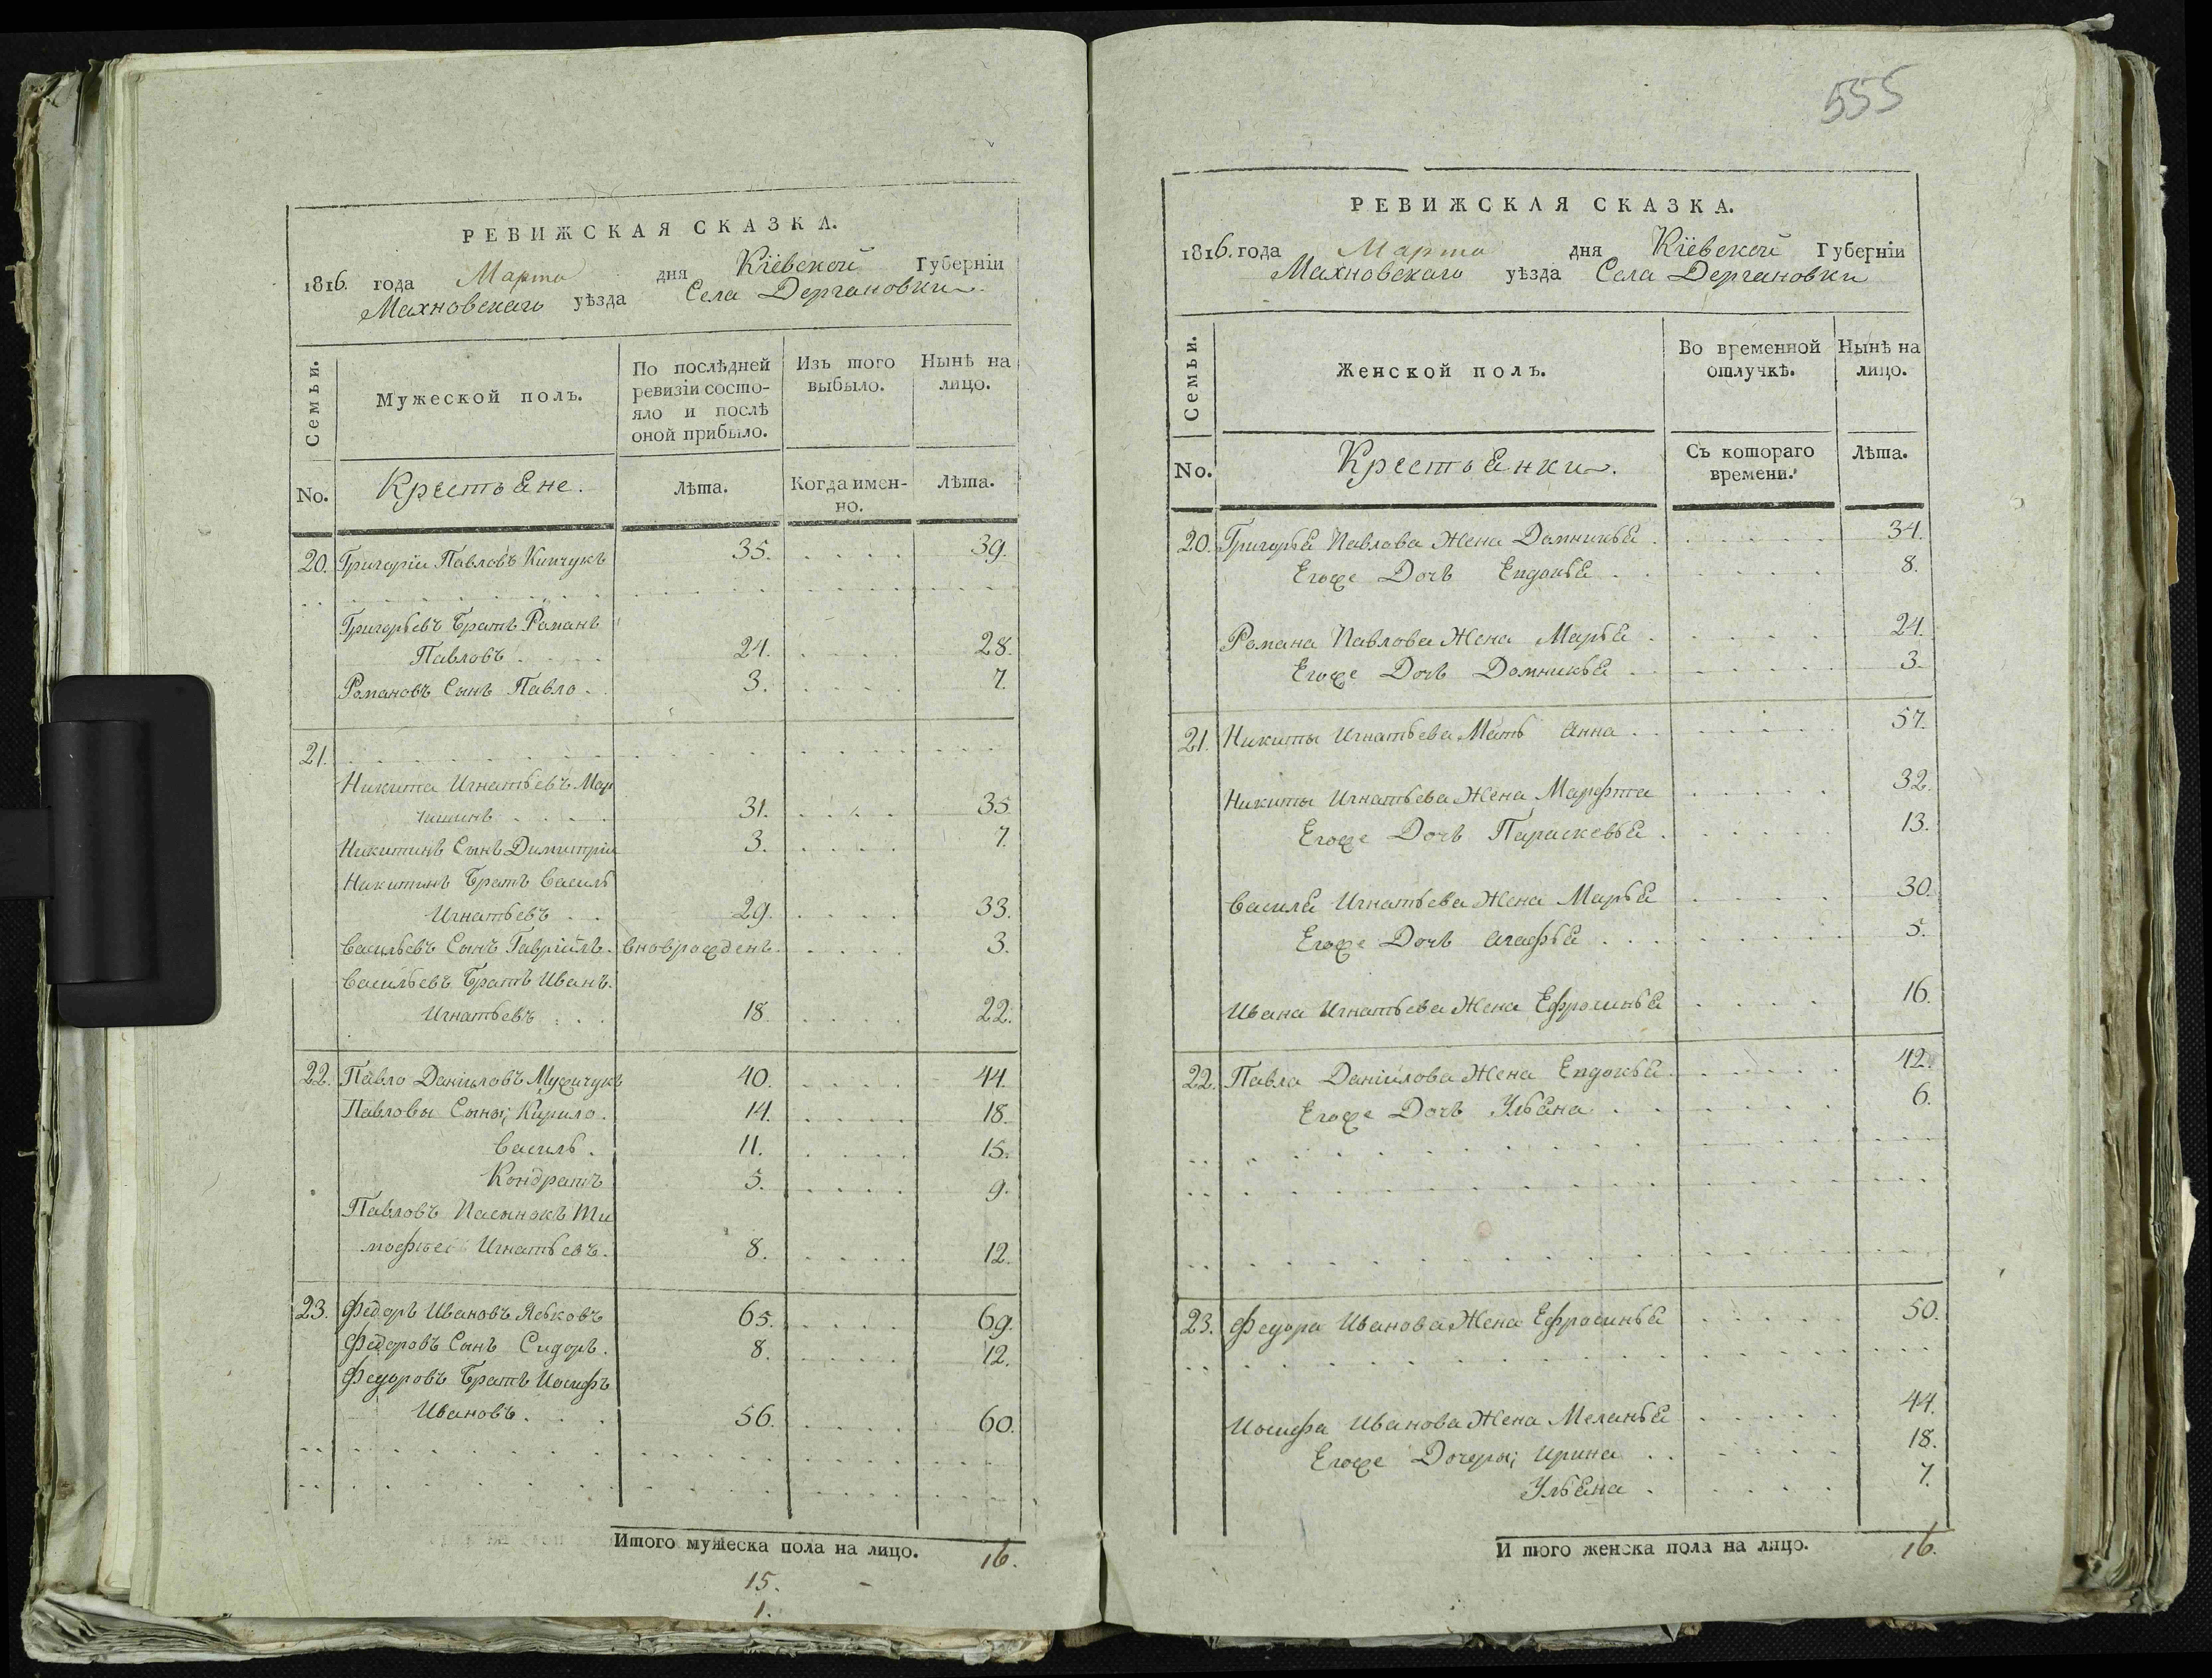 555
РЕВИЖСКАЯ СКАЗКА.
1816. года Марта дня Кіевской Губерніи
Махновскаго уѣзда Села Дергановки
Семьи.
Мужеской полъ.
По послѣдней ревизіи состо-
яло и послѣ оной прибыло.
Изъ того выбыло.
Нынѣ на лицо.
No.
Крестьяне.
Лѣта.
Когда имен-
но.
Лѣта.
20. Григоріи Павловъ Кипчукъ 35. 39.
Григорьевъ Братъ Романъ
Павловъ 24. 28.
Романовъ Сынъ Павло. 3. 7.
21.
Никита Игнатьевъ Мар
31. 35.
Никитинъ Сынъ Димитріи 3. 7.
Никитинъ Братъ Василь
Игнатьевъ 29. 33.
Васильевъ Сынъ Гавріилъ. вновърожденъ. 3.
Васильевъ Братъ Иванъ.
Игнатьевъ 18. 22.
22. Павло Даніиловъ Мужичукъ 40. 44.
Павловы Сыны; Кирило. 14. 18.
Василь. 11. 15.
Кондратъ 5. 9.
Павловъ Пасынокъ Ти
мофѣей Игнатьевъ. 8. 12.
23. Федоръ Ивановъ Яськовъ 65. 69.
Федоровъ Сынъ Сидоръ. 8. 12.
Федоровъ Братъ Иосифъ
Ивановъ. 56. 60.
Итого мужеска пола на лицо. 16.
15.
1.
РЕВИЖСКАЯ СКАЗКА.
1816. года Марта дня Кіевской Губерніи
Махновскаго уѣзда Села Дергановки
Семьи.
Женской полъ.
Во временной
отлучкѣ.
Нынѣ на
лицо.
No.
Крестьянки.
Съ котораго
времени.
Лѣта.
20. Григорья Павлова Жена Домникья 34.
Егоже Дочь Евдокья 8.
Романа Павлова Жена Марья 24.
Егоже Дочь Домникья 3.
21. Никиты Игнатьева Мать Анна 57.
Никиты Игнатьева Жена Марфта 32.
Егоже Дочь Параскевья 13.
Василя Игнатьева Жена Марья 30.
Егоже Дочь Агафья 5.
Ивана Игнатьева Жена Ефросинья 16.
22. Павла Даніилова Жена Евдокья 42.
Егоже Дочь Ульяна 6.
23. Федора Иванова Жена Ефросинья 50.
Иосифа Иванова Жена Меланья 44.
Егоже Дочеры; Ирина 18.
Ульяна 7.
И того женска пола на лицо. 16.